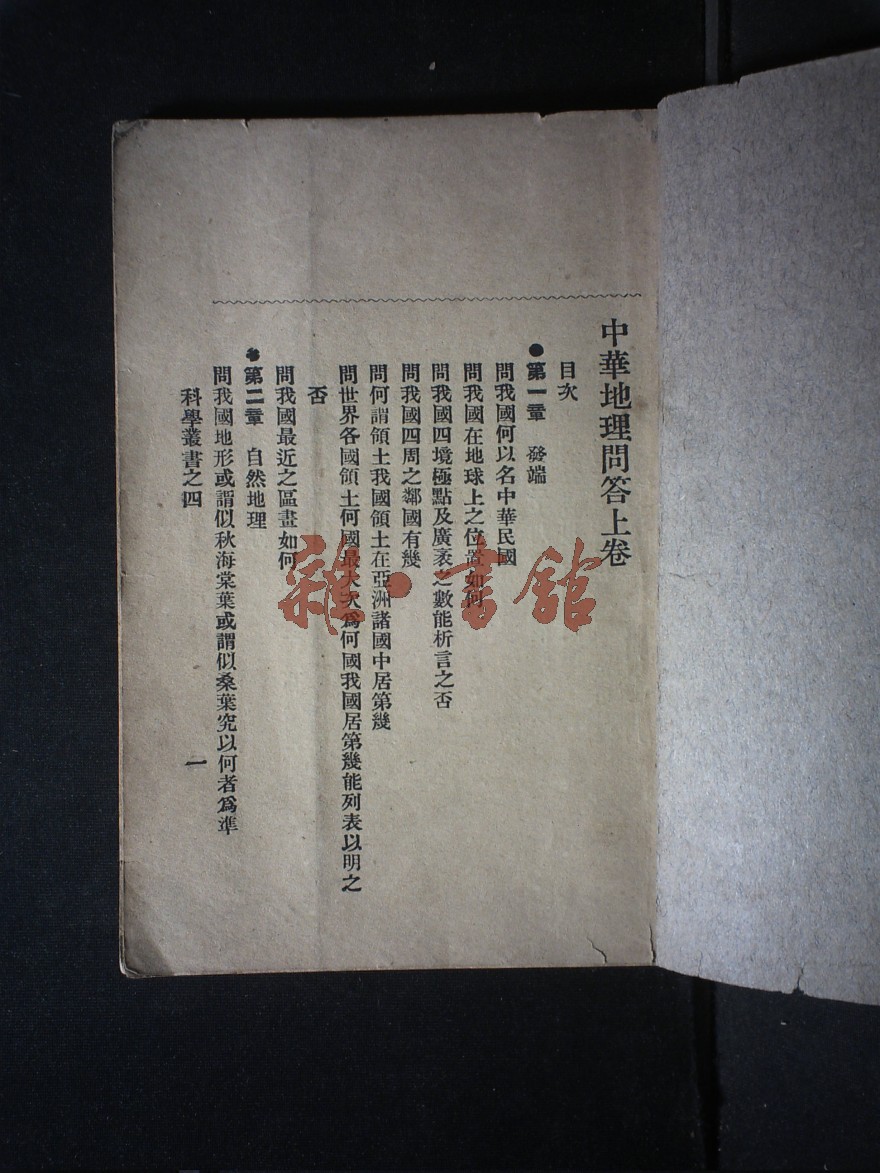 中華地理問答上卷
目次
●第一章　發端
問我國何以名中華民國
問我國在地球上之位置如何
問我國四境極點及廣袤之數能析言之否
問我國四周之鄰國有幾
問何謂領土我國領土在亞洲諸國中居第幾
問世界各國領土何國最大次爲何國我國居第幾能列表以明之
否
問我國最近之區畫如何
●第二章　自然地理
問我國地形或謂似秋海棠葉或謂似桑葉究以何者爲準
科學叢書之四
一
雜·書館